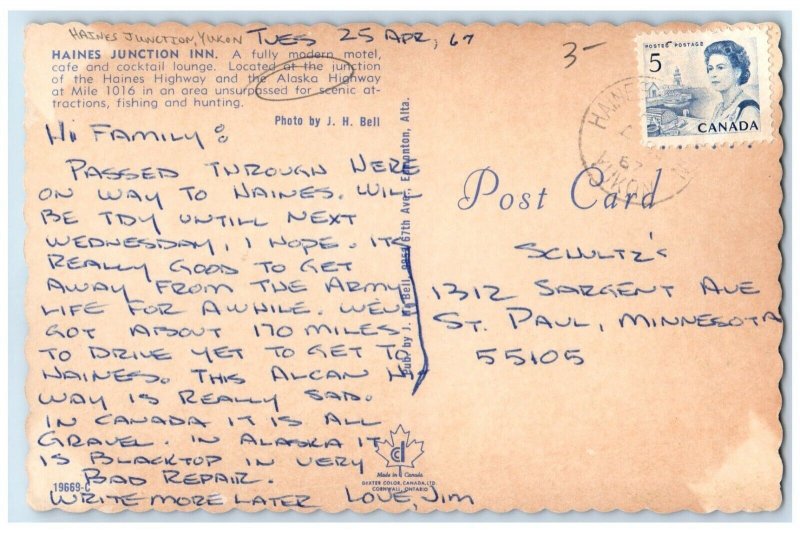 HAINES JUNCTION, YUKON
TUES 25 APR, 67
3-
HAINES JUNCTION INN. A fully modern motel,
cafe and cocktail lounge. Located at the junction
of the Haines Highway and the Alaska Highway
at Mile 1016 in an area unsurpassed for scenic at-
tractions, fishing and hunting.
Photo by J. H. Bell
HI FAMILY:
PASSED THROUGH HERE
ON WAY TO HAINES. WILL
BE TDY UNTILL NEXT
WEDNESDAY, I HOPE. ITS
REALLY GOOD TO GET
AWAY FROM THE ARMY
LIFE FOR AWHILE. WE'VE
GOT ABOUT 170 MILES
TO DRIVE YET TO GET TO
HAINES. THIS ALCAN HI
WAY IS REALLY SAD.
IN CANADA IT IS ALL
GRAVEL. IN ALASKA IT
IS BLACKTOP IN VERY
BAD REPAIR.
WRITE MORE LATER LOVE, JIM
19669-C
Pub. by J. H. Bell, 67th Ave., Edmonton, Alta.
Made in Canada
DEXTER COLOR, CANADA, LTD.
CORNWALL, ONTARIO
Post Card
POSTES POSTAGE
5
CANADA
HAINES
67
YUKON
SCHULTZ'S
1312 SARGENT AVE
ST. PAUL, MINNESOTA
55105